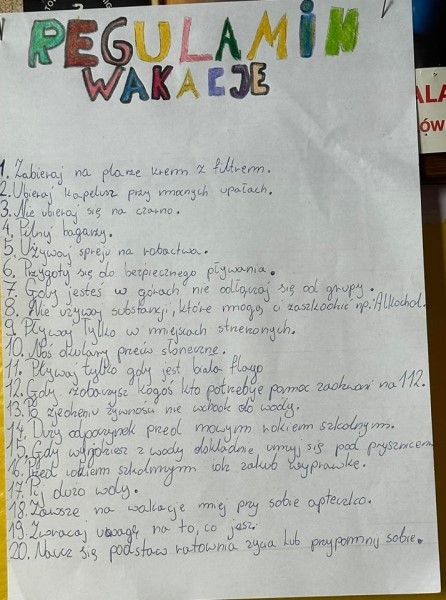 REGULAMIN
WAKACJE
ALA
ÓW
1. Zabieraj na plarze krem z filtrem.
2. Ubieraj kapelusz przy mocnych upałach.
3. Nie ubieraj się na czarno.
4. Pilnuj bagarzy.
5. Używaj spreju na robactwa.
6. Przygotuj się do bezpiecznego pływania.
7. Gdy jesteś w górach nie odłączaj się od grupy.
8. Nie używaj substancji, które mogą ci zaszkodzić np: Alkohol.
9. Pływaj tylko w miejscach strzeżonych.
10. Noś okulary przeciw słoneczne.
11. Pływaj tylko gdy jest biała flaga
12. Gdy zobaczysz kogoś kto potrzebuje pomoc zadzwoń na 112.
13. Po zjedzeniu żywności nie wchodź do wody.
14. Duży odpoczynek przed nowym rokiem szkolnym.
15. Gdy wyjdziesz z wody dokładnie umyj się pod prysznicem
16. Przed rokiem szkolnym idź zakub wyprawkę.
17. Pij dużo wody.
18. Zawsze na wakacje miej przy sobie apteczkę.
19. Zwracaj uwagę na to, co jesz.
20. Naucz się podstaw ratownia życia lub przypomnij sobie.